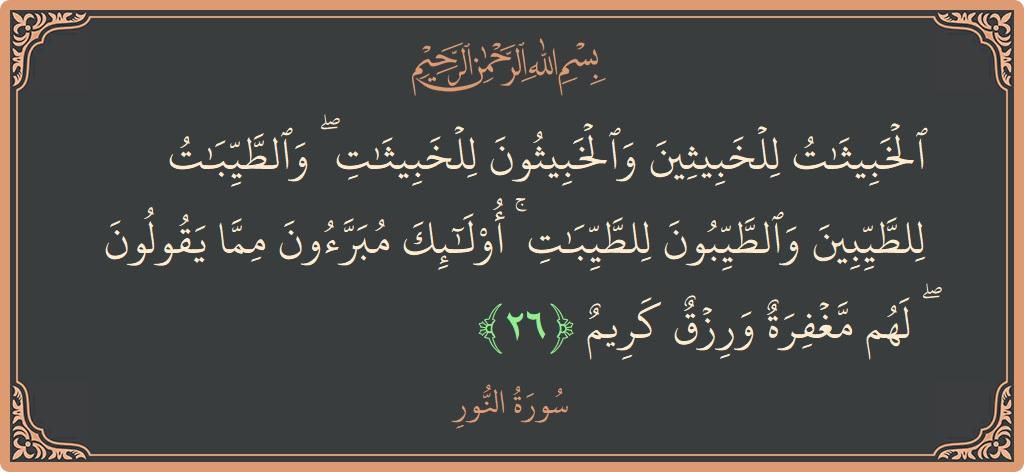 بِسْمِ اللَّهِ الرَّحْمَٰنِ الرَّحِيمِ
ٱلْخَبِيثَٰتُ لِلْخَبِيثِينَ وَٱلْخَبِيثُونَ لِلْخَبِيثَٰتِ ۖ وَٱلطَّيِّبَٰتُ
لِلطَّيِّبِينَ وَٱلطَّيِّبُونَ لِلطَّيِّبَٰتِ ۚ أُو۟لَٰٓئِكَ مُبَرَّءُونَ مِمَّا يَقُولُونَ
ۖ لَهُم مَّغْفِرَةٌ وَرِزْقٌ كَرِيمٌ ﴿٢٦﴾
سُورَةُ النُّورِ